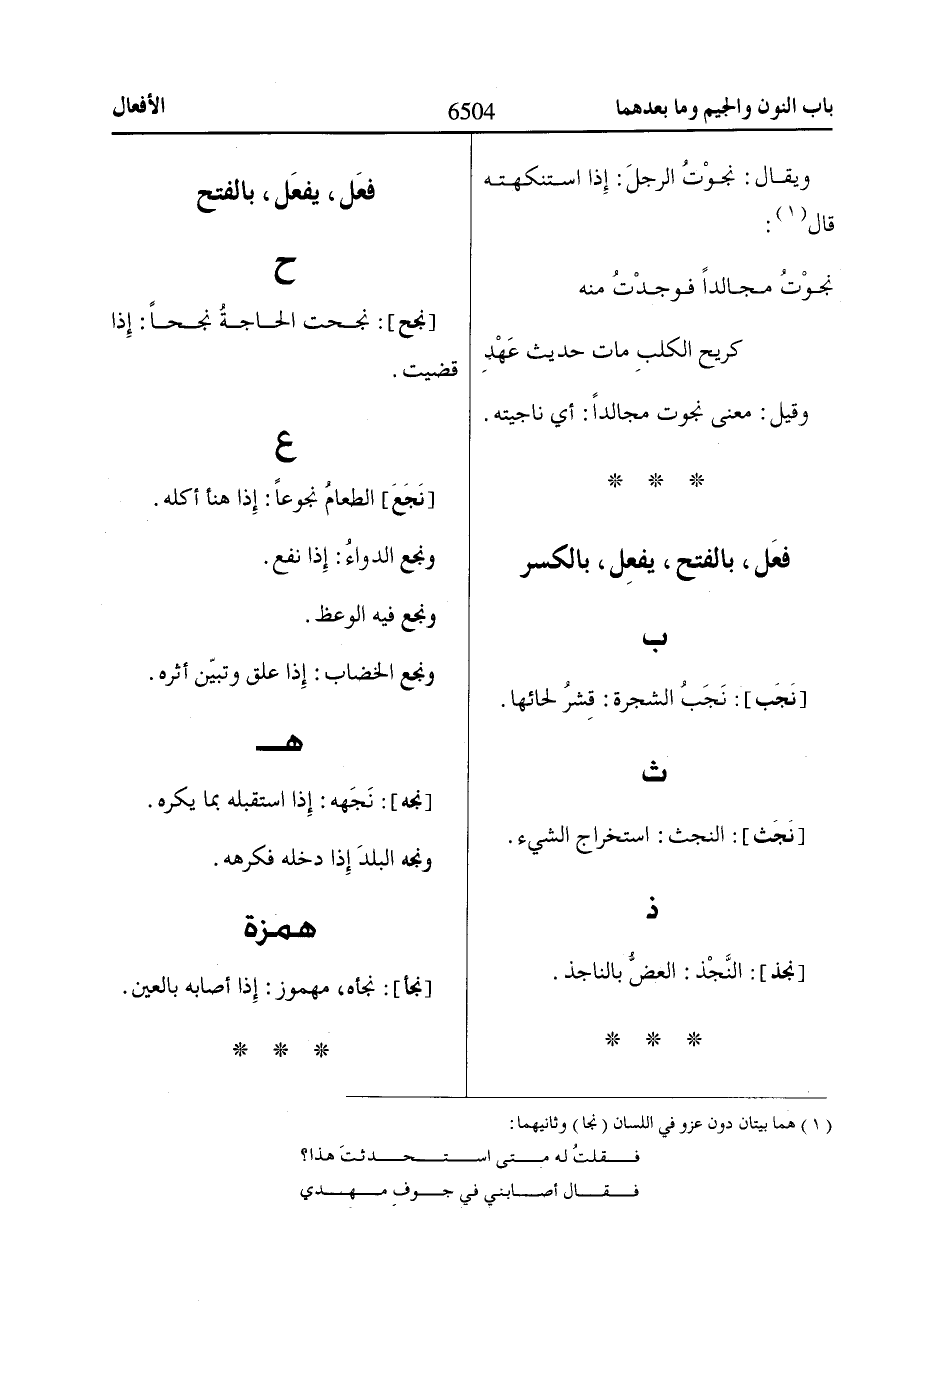 باب النون والجيم وما بعدهما
6504
الأفعال
ويقال: نجوْتُ الرجلَ: إذا استنكهته
قال(١):
نجوْتُ مجالداً فوجدْتُ منه
كريح الكلبِ مات حديث عَهْدِ
وقيل: معنى نجوت مجالداً: أي ناجيته.
* * *
فعَل، بالفتح، يفعِل، بالكسر
ب
[نَجَب]: نَجَبُ الشجرة: قِشرُ لحائها.
ث
[نَجَث]: النجث: استخراج الشيء.
ذ
[نجذ]: النَّجْذ: العضُّ بالناجذ.
* * *
فعَل، يفعَل، بالفتح
ح
[نجح]: نجحت الحاجةُ نجحاً: إذا
قضيت.
ع
[نَجَعَ] الطعامُ نجوعاً: إذا هنأ أكله.
ونجع الدواءُ: إذا نفع.
ونجع فيه الوعظ.
ونجع الخضاب: إذا علق وتبيّن أثره.
هـ
[نجه]: نَجَهه: إذا استقبله بما يكره.
ونجه البلدَ إذا دخله فكرهه.
همزة
[نجأ]: نجأه، مهموز: إذا أصابه بالعين.
* * *
(١) هما بيتان دون عزو في اللسان (نجا) وثانيهما:
فقلتُ له متى استحدثتَ هذا؟
فقال أصابني في جوفِ مهدي